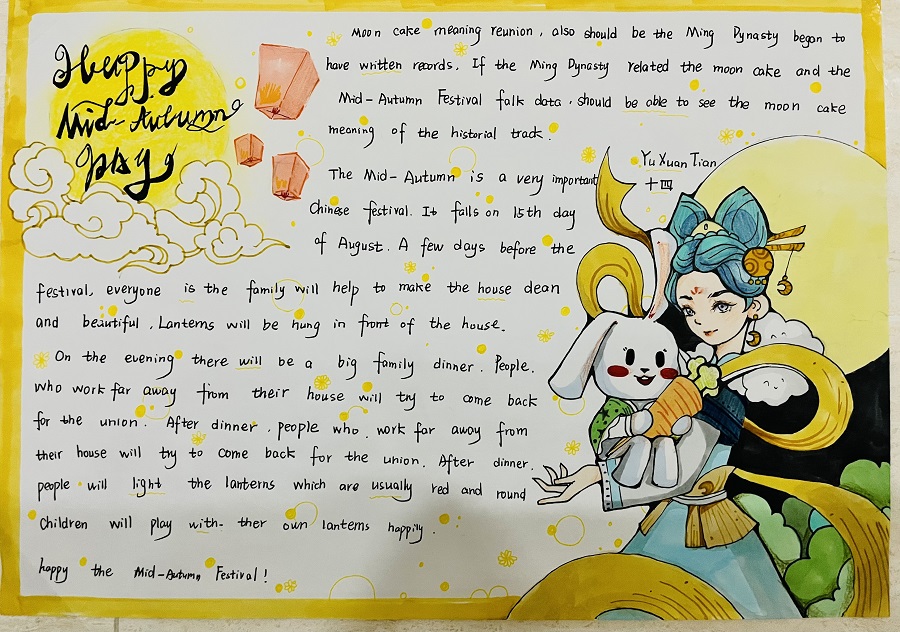 Happy
Mid-Autumn
Day
Moon cake meaning reunion, also should be the Ming Dynasty began to
have written records. If the Ming Dynasty related the moon cake and the
Mid-Autumn Festival folk data, should be able to see the moon cake
meaning of the historial track.
Yu Xuan Tian
十四
The Mid-Autumn is a very important
Chinese festival. It falls on 15th day
of August. A few days before the
festival, everyone is the family will help to make the house dean
and beautiful. Lanterns will be hung in front of the house.
On the evening there will be a big family dinner. People.
who work far away from their house will try to come back
for the union. After dinner, people who work far away from
their house will try to come back for the union. After dinner.
people will light the lanterns which are usually red and round
Children will play with ther own lantems happily.
happy the Mid-Autumn Festival!